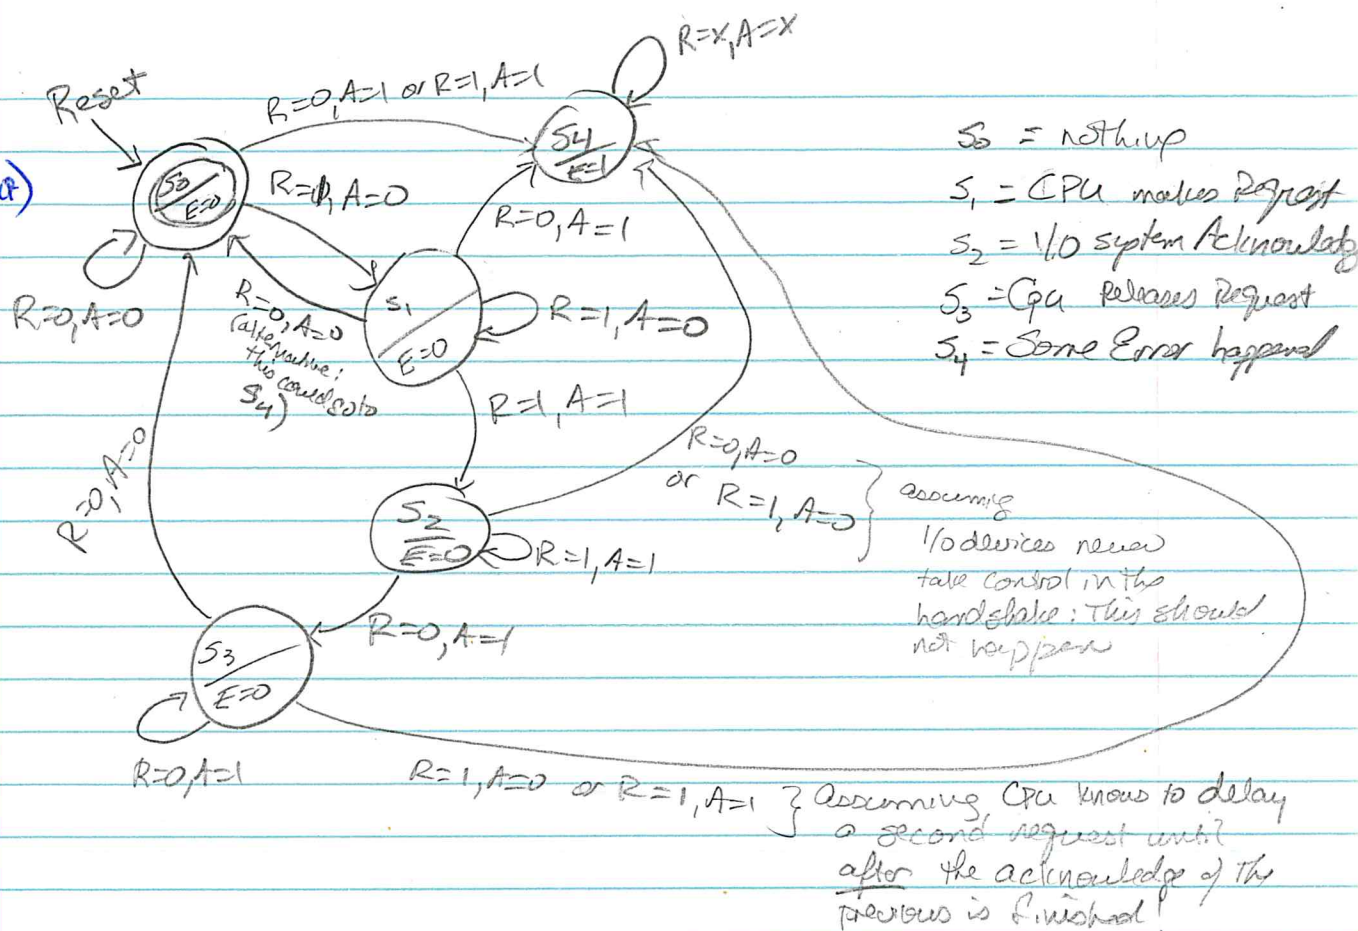 Reset
R=0,A=1 or R=1,A=1
R=X,A=X
S4
E=1
S0
E=0
R=1,A=0
R=0,A=0
R=0,A=1
S1
E=0
R=0,A=0
(alternative:
this could go to
S4)
R=1,A=0
R=1,A=1
R=0,A=0
S2
E=0
R=1,A=1
R=0,A=0
or R=1,A=0
assuming
I/O devices never
take control in the
handshake: This should
not happen
R=0,A=1
S3
E=0
R=0,A=1
R=1,A=0 or R=1,A=1
Assuming CPU knows to delay
a second request until
after the acknowledge of the
previous is finished!
S0 = nothing
S1 = CPU makes Request
S2 = I/O system Acknowledg
S3 = Cpu Releases Request
S4 = Some Error happened